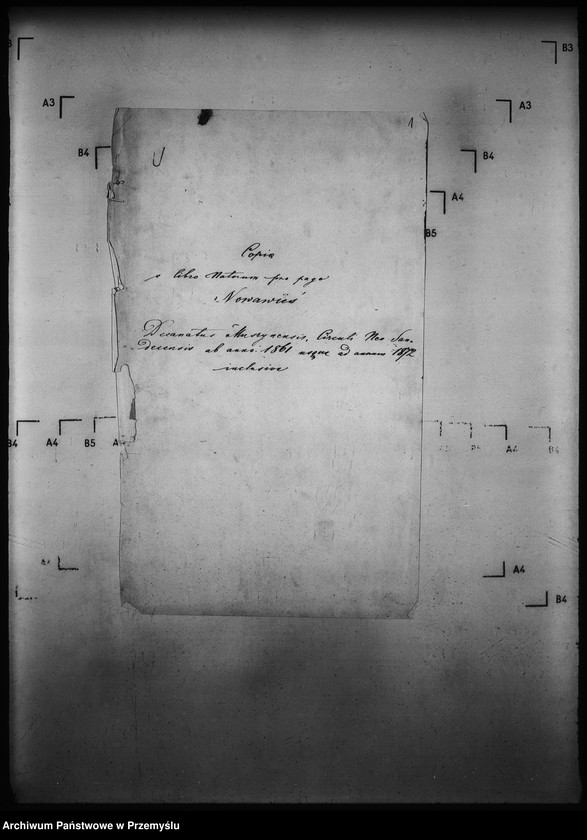 1
Copia
e libro Natorum pro pago
Nowawieś
Decanatus Muszynensis, Circuli Neo San-
decensis ab anno 1861 usque ad annum 1872
inclusive
B3
B3
A3
A3
B4
B4
A4
B5
B4
A4
B5
A4
B4
A4
B4
Archiwum Państwowe w Przemyślu